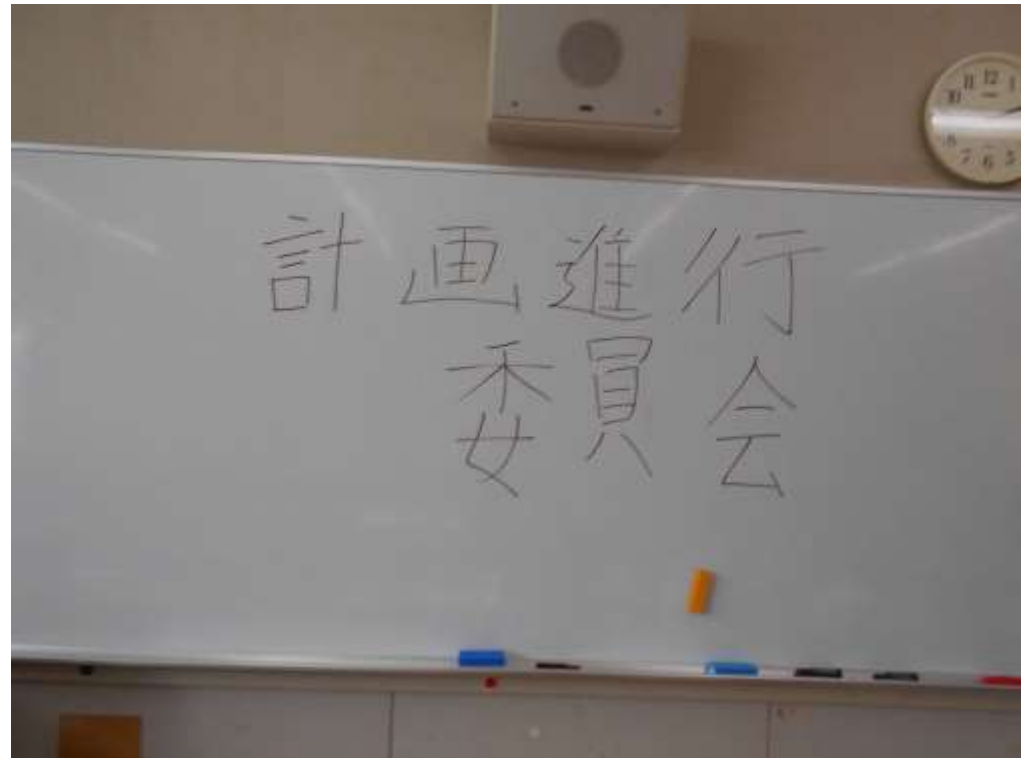 計画進行
委員会
11 12 1
10
8
7 6 5